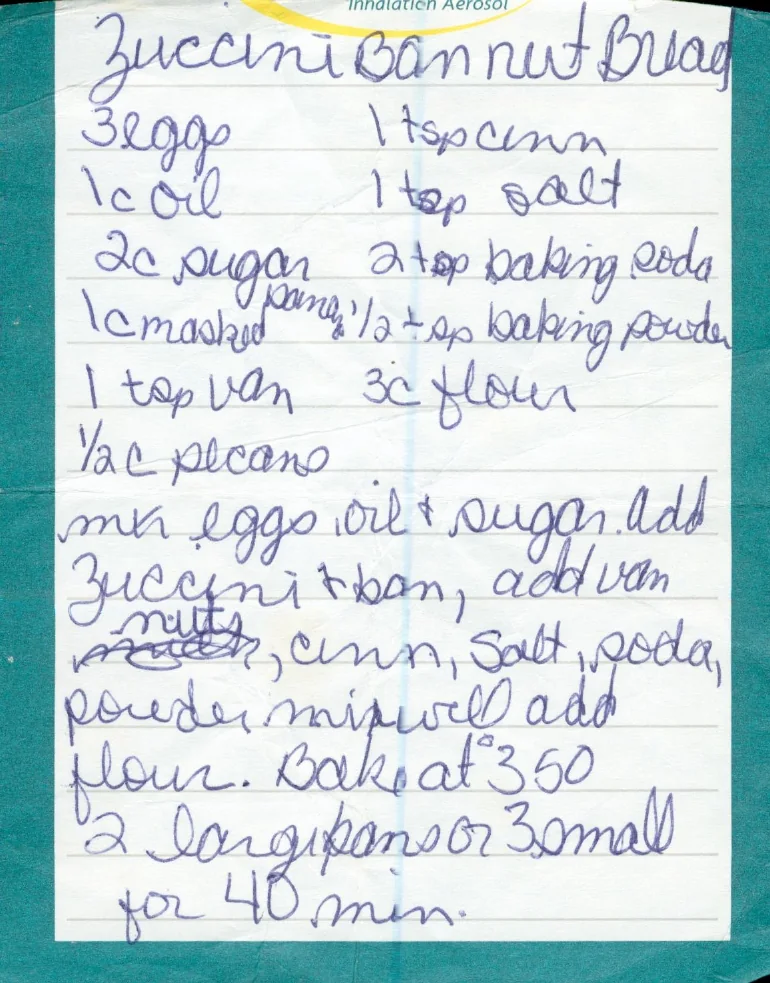 Inhalation Aerosol
Zuccini Ban nut Bread
3 eggs 1 tsp cinn
1c oil 1 tsp salt
2c sugar 2 tsp baking soda
1c mashed banan 1/2 tsp baking powder
1 tsp van 3c flour
1/2 c pecans
mix eggs, oil + sugar. add
Zuccini + ban, add van
nuts, cinn, salt, soda,
powder mix well add
flour. Bake at °350
2 large pans or 3 small
for 40 min.